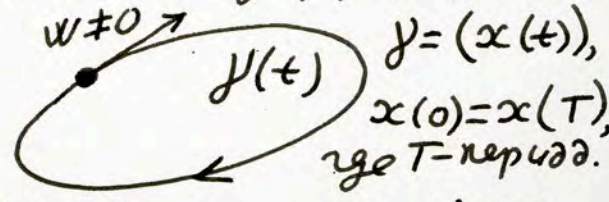 w≠0
γ(t)
γ=(x(t)),
x(0)=x(T),
где T-период.